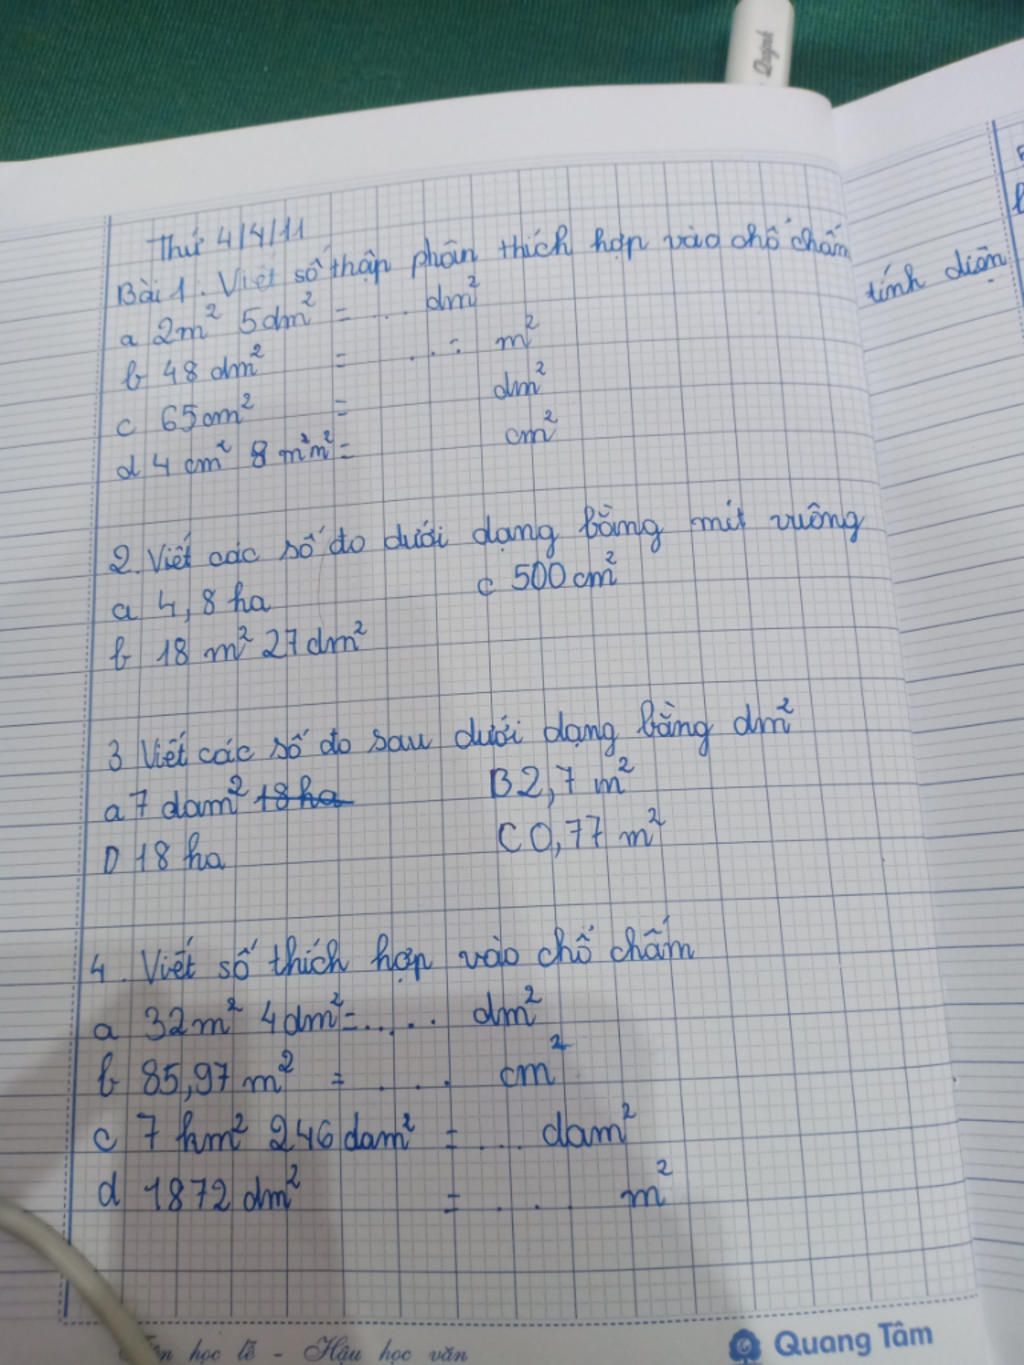 Quỳnh
Thứ 4/4/11
Bài 1. Viết số thập phân thích hợp vào chỗ chấm
a 2m² 5dm² = ... dm²
b 48 dm² = ... m²
c 65cm² = dm²
d 4 cm² 8 mm² = cm²
tính diện
2. Viết các số đo dưới dạng bằng mét vuông
a 4,8 ha c 500 cm²
b 18 m² 27 dm²
3 Viết các số đo sau dưới dạng bằng dm²
a 7 dam² 18 ha B 2,7 m²
D 18 ha C 0,77 m²
4. Viết số thích hợp vào chỗ chấm
a 32m² 4dm² = ..... dm²
b 85,97 m² = .... cm²
c 7 hm² 246 dam² = ... dam²
d 1872 dm² = ... m²
học lễ - Hậu học văn
Quang Tâm